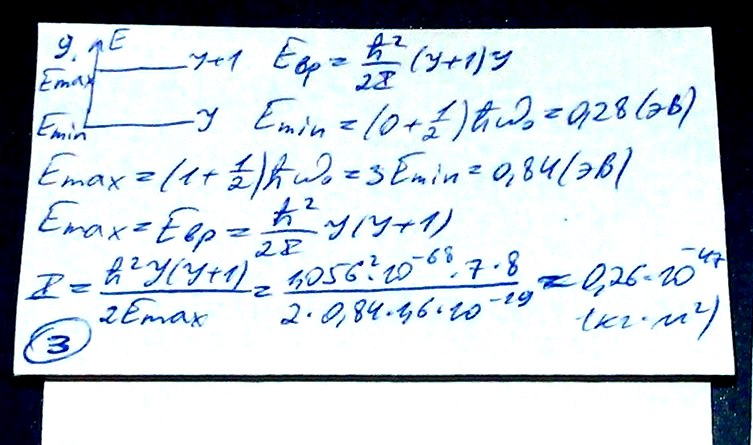 9. E
Emax y+1 Eвр = ℏ²/2I (y+1)y
Emin y Emin = (0+1/2)ℏω₀ = 0,28 (эВ)
Emax = (1+1/2)ℏω₀ = 3Emin = 0,84 (эВ)
Emax = Eвр = ℏ²/2I y(y+1)
I = ℏ²y(y+1)/2Emax = 1,056²·10⁻⁶⁸·7·8/2·0,84·1,6·10⁻¹⁹ = 0,26·10⁻⁴⁷
(кг·м²)
3